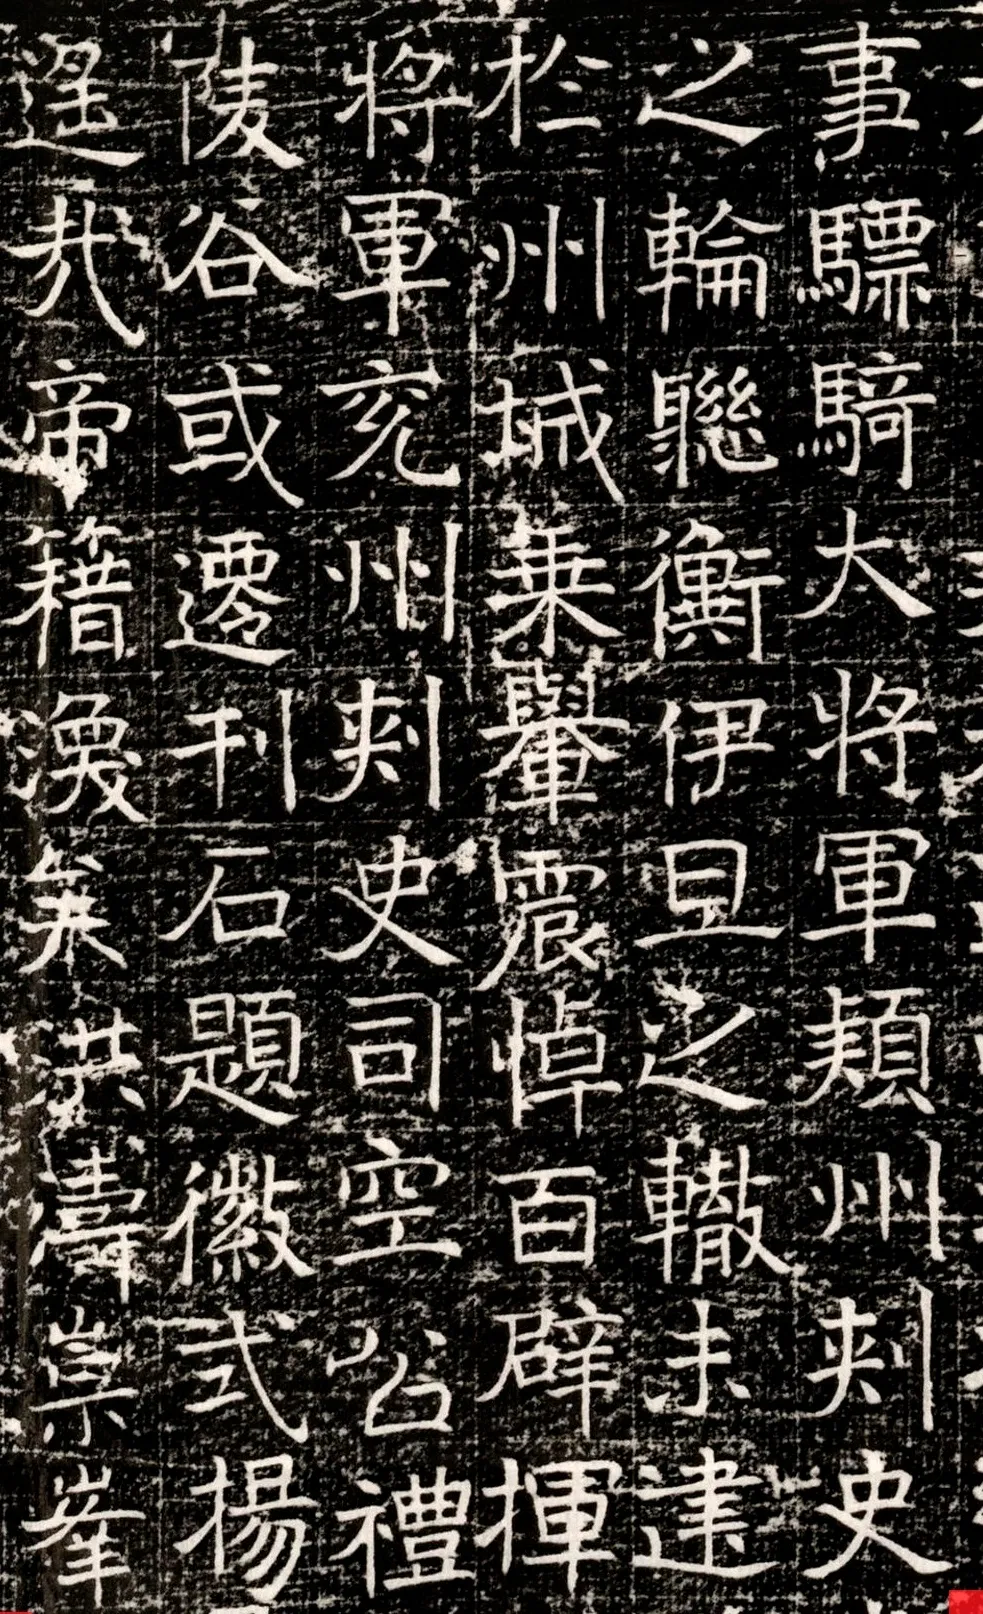 事驃騎大將軍頴州刺史
之輪聯衡伊旦之轍未建
於州城乘轝震悼百辟揮
將軍兗州刺史司空公禮
陵谷或遷刊石題徽式揚
遥哉帝籍漫矣洪濤崇峯